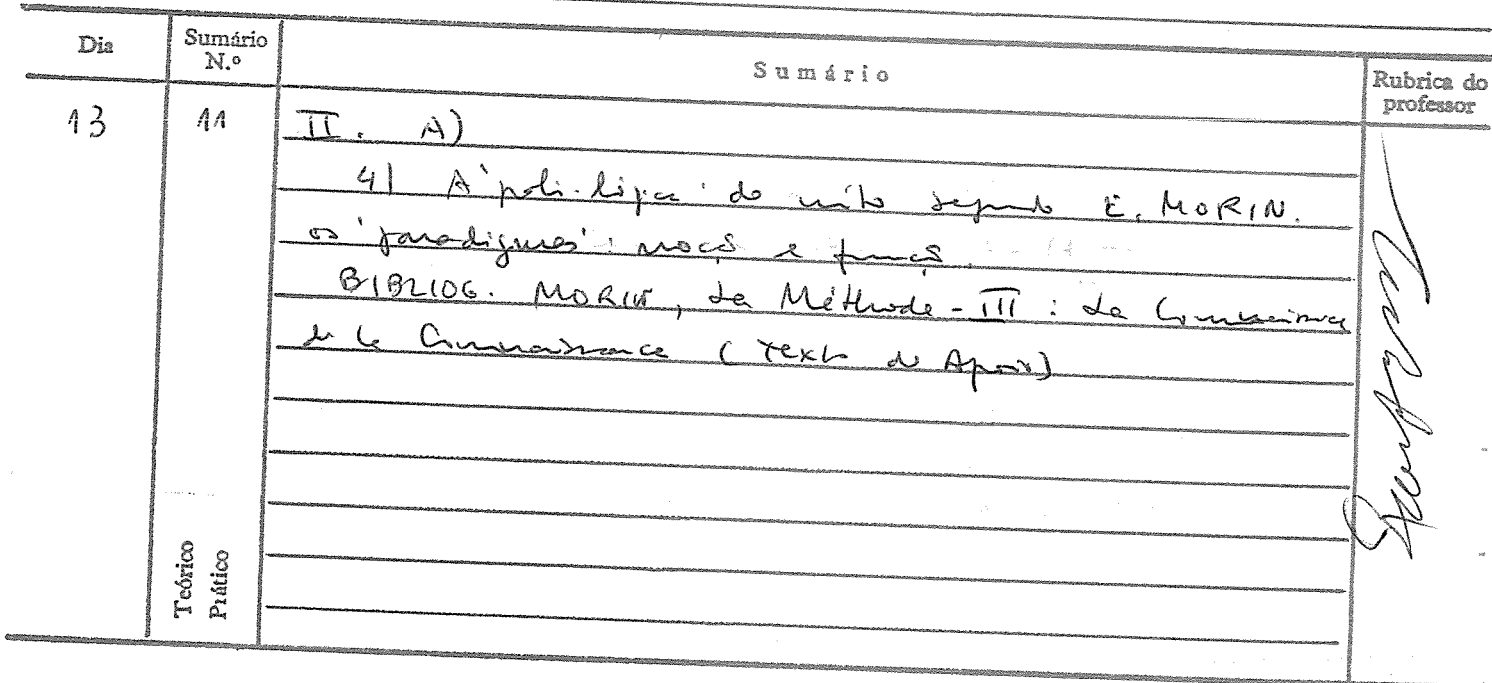 Dia
Sumário N.º
Sumário
Rubrica do professor
13
11
II. A)
4) A 'poli-lógica' do mito segundo E. MORIN.
os 'paradigmas': noção e função.
BIBLIOG. MORIN, La Méthode - III : La Connaissance
de la Connaissance (Texto de Apoio)
Teórico
Prático